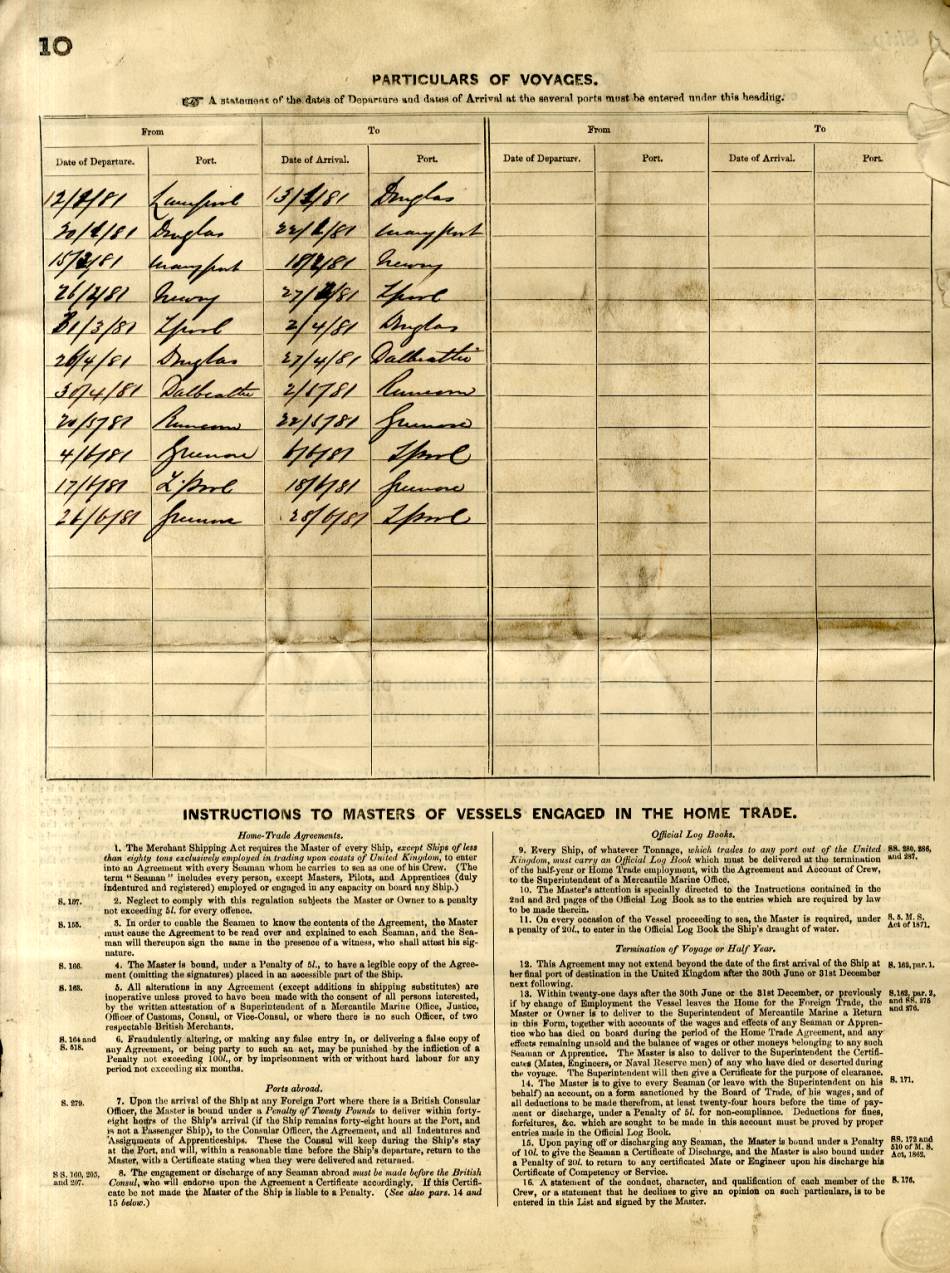 10
PARTICULARS OF VOYAGES.
☞ A statement of the dates of Departure and dates of Arrival at the several ports must be entered under this heading.
From To From To
Date of Departure. Port. Date of Arrival. Port. Date of Departure. Port. Date of Arrival. Port.
Douglas
Douglas Maryport
Maryport Newry
26/2/81 Newry Lpool
31/3/81 Lpool 2/4/81 Douglas
26/4/81 Douglas 27/4/81 Dalbeattie
30/4/81 Dalbeattie 2/5/81 Runcorn
20/5/81 Runcorn 22/5/81 Greenore
4/6/81 Greenore 6/6/81 Lpool
17/6/81 L'pool 18/6/81 Greenore
26/6/81 Greenore 28/6/81 Lpool
INSTRUCTIONS TO MASTERS OF VESSELS ENGAGED IN THE HOME TRADE.
Home-Trade Agreements.
1. The Merchant Shipping Act requires the Master of every Ship, except Ships of less
than eighty tons exclusively employed in trading upon coasts of United Kingdom, to enter
into an Agreement with every Seaman whom he carries to sea as one of his Crew. (The
term "Seaman" includes every person, except Masters, Pilots, and Apprentices (duly
indentured and registered) employed or engaged in any capacity on board any Ship.)
S. 157. 2. Neglect to comply with this regulation subjects the Master or Owner to a penalty
not exceeding 5l. for every offence.
S. 155. 3. In order to enable the Seamen to know the contents of the Agreement, the Master
must cause the Agreement to be read over and explained to each Seaman, and the Sea-
man will thereupon sign the same in the presence of a witness, who shall attest his sig-
nature.
S. 166. 4. The Master is bound, under a Penalty of 5l., to have a legible copy of the Agree-
ment (omitting the signatures) placed in an accessible part of the Ship.
S. 163. 5. All alterations in any Agreement (except additions in shipping substitutes) are
inoperative unless proved to have been made with the consent of all persons interested,
by the written attestation of a Superintendent of a Mercantile Marine Office, Justice,
Officer of Customs, Consul, or Vice-Consul, or where there is no such Officer, of two
respectable British Merchants.
S. 164 and S. 518. 6. Fraudulently altering, or making any false entry in, or delivering a false copy of
any Agreement, or being party to such an act, may be punished by the infliction of a
Penalty not exceeding 100l., or by imprisonment with or without hard labour for any
period not exceeding six months.
Ports abroad.
S. 279. 7. Upon the arrival of the Ship at any Foreign Port where there is a British Consular
Officer, the Master is bound under a Penalty of Twenty Pounds to deliver within forty-
eight hours of the Ship's arrival (if the Ship remains forty-eight hours at the Port, and
is not a Passenger Ship), to the Consular Officer, the Agreement, and all Indentures and
Assignments of Apprenticeships. These the Consul will keep during the Ship's stay
at the Port, and will, within a reasonable time before the Ship's departure, return to the
Master, with a Certificate stating when they were delivered and returned.
SS. 160, 205, and 207. 8. The engagement or discharge of any Seaman abroad must be made before the British
Consul, who will endorse upon the Agreement a Certificate accordingly. If this Certifi-
cate be not made the Master of the Ship is liable to a Penalty. (See also pars. 14 and
15 below.)
Official Log Books.
9. Every Ship, of whatever Tonnage, which trades to any port out of the United SS. 280, 286,
Kingdom, must carry an Official Log Book which must be delivered at the termination and 287.
of the half-year or Home Trade employment, with the Agreement and Account of Crew,
to the Superintendent of a Mercantile Marine Office.
10. The Master's attention is specially directed to the Instructions contained in the
2nd and 3rd pages of the Official Log Book as to the entries which are required by law
to be made therein.
11. On every occasion of the Vessel proceeding to sea, the Master is required, under S. 5. M. S.
a penalty of 20l., to enter in the Official Log Book the Ship's draught of water. Act of 1871.
Termination of Voyage or Half Year.
12. This Agreement may not extend beyond the date of the first arrival of the Ship at S. 163, par. 1.
her final port of destination in the United Kingdom after the 30th June or 31st December
next following.
13. Within twenty-one days after the 30th June or the 31st December, or previously S.162, par. 2,
if by change of Employment the Vessel leaves the Home for the Foreign Trade, the and SS. 275
Master or Owner is to deliver to the Superintendent of Mercantile Marine a Return and 276.
in this Form, together with accounts of the wages and effects of any Seaman or Appren-
tice who has died on board during the period of the Home Trade Agreement, and any
effects remaining unsold and the balance of wages or other moneys belonging to any such
Seaman or Apprentice. The Master is also to deliver to the Superintendent the Certifi-
cates (Mates, Engineers, or Naval Reserve men) of any who have died or deserted during
the voyage. The Superintendent will then give a Certificate for the purpose of clearance.
14. The Master is to give to every Seaman (or leave with the Superintendent on his S. 171.
behalf) an account, on a form sanctioned by the Board of Trade, of his wages, and of
all deductions to be made therefrom, at least twenty-four hours before the time of pay-
ment or discharge, under a Penalty of 5l. for non-compliance. Deductions for fines,
forfeitures, &c. which are sought to be made in this account must be proved by proper
entries made in the Official Log Book.
15. Upon paying off or discharging any Seaman, the Master is bound under a Penalty SS. 172 and
of 10l. to give the Seaman a Certificate of Discharge, and the Master is also bound under 510 of M. S.
a Penalty of 20l. to return to any certificated Mate or Engineer upon his discharge his Act, 1862.
Certificate of Competency or Service.
16. A statement of the conduct, character, and qualification of each member of the S. 176.
Crew, or a statement that he declines to give an opinion on such particulars, is to be
entered in this List and signed by the Master.